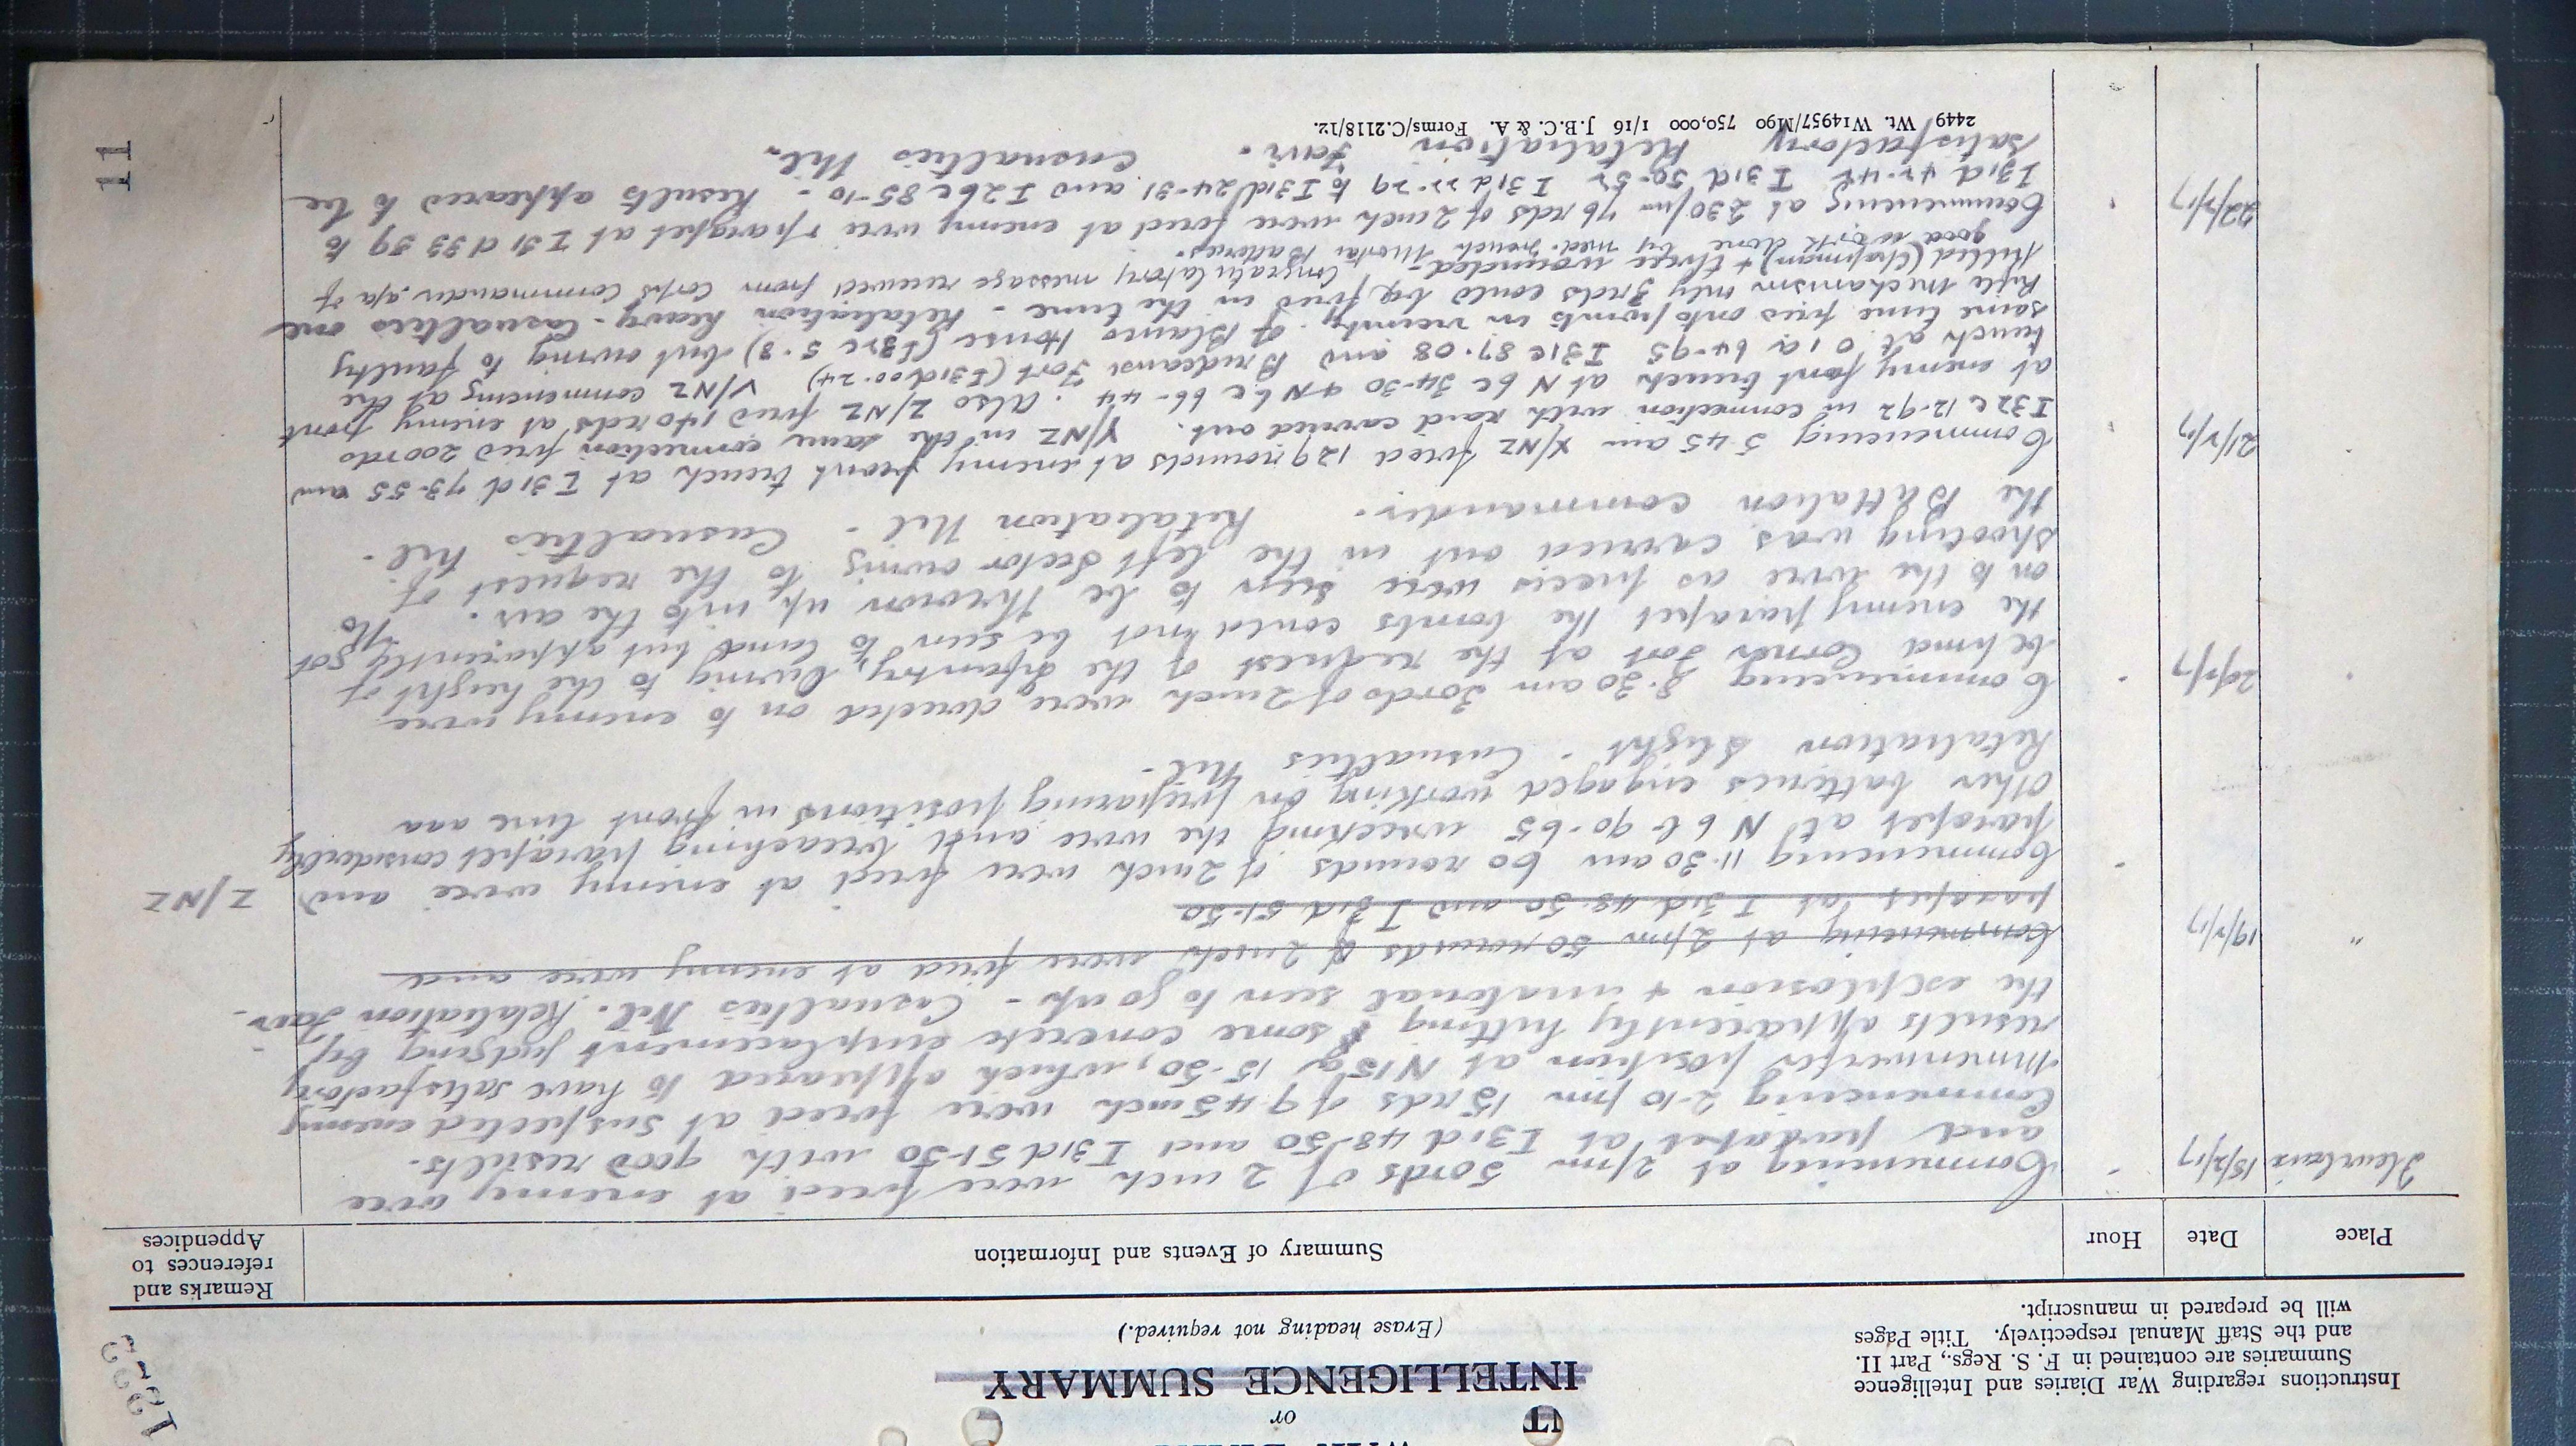 WAR DIARY
or
INTELLIGENCE SUMMARY
(Erase heading not required.)
Instructions regarding War Diaries and Intelligence
Summaries are contained in F. S. Regs., Part II.
and the Staff Manual respectively. Title Pages
will be prepared in manuscript.
Place
Date
Hour
Summary of Events and Information
Remarks and
references to
Appendices
Fleurbaix 18/2/17 Commencing at 2/pm 50rds of 2 inch were fired at enemy wire
and parapet at I31d 48.50 and I31d 51.50 with good results.
Commencing 2.10 pm 15 rds of 9.45 inch were fired at suspected enemy
Minenwerfer position at N15a 15.50, which appeared to have satisfactory
results apparently hitting some concrete emplacement judging by
the explosion + material seen to go up - Casualties Nil. Retaliation Fair -
" 19/2/17 Commencing at 2/pm 50 rounds of 2 inch were fired at enemy wire and
parapet at I31d 48.50 and I31d 51.50
Commencing 11.30 am 60 rounds of 2 inch were fired at enemy wire and Z/NZ
parapet at N6b 90.65 wrecking the wire and breaching parapet considerably
Other batteries engaged working on preparing positions in front line aaa
Retaliation slight. Casualties Nil -
20/2/17 Commencing 8.30 am 30rds of 2 inch were directed on to enemy wire
behind Corner Fort at the request of the Infantry, Owing to the height of
the enemy parapet the bombs could not be seen to land but apparently got
on to the wire as pieces were seen to be thrown up into the air. No
shooting was carried out in the left Sector owing to the request of
the Battalion commander. Retaliation Nil - Casualties Nil -
21/2/17 Commencing 5.45 am X/NZ fired 129 rounds at enemy front trench at I31d 73.55 and
I32c 12.92 in connection with raid carried out. Y/NZ in the same connection fired 200rds
at enemy front trench at N6c 34.30 + N6c 66.44. Also Z/NZ fired 140 rds at enemy front
trench at O1a 64.95 I31c 87.08 and Brideaux Fort (I31d 00.24) V/NZ commencing at the
same time fired onto points in vicinity of Blanco House (I32c 5.8) but owing to faulty
Rifle Mechanism only 3rds could be fired in the time - Retaliation heavy - Casualties one
killed (Chapman) + three wounded - Congratulatory message received from Corps Commander a/a of
good work done by med. Trench Mortar Batterys.
22/2/17 Commencing at 2.30/pm 76 rds of 2 inch were fired at enemy wire + parapet at I31d 33.39 to
I31d 42.42 I31d 50.52 I31d 22.29 to I31d 24.31 and I26c 85.10 - Results appeared to be
satisfactory Retaliation Fair. Casualties Nil.
2449 Wt. W14957/M90 750,000 1/16 J.B.C. & A. Forms/C.2118/12.
11